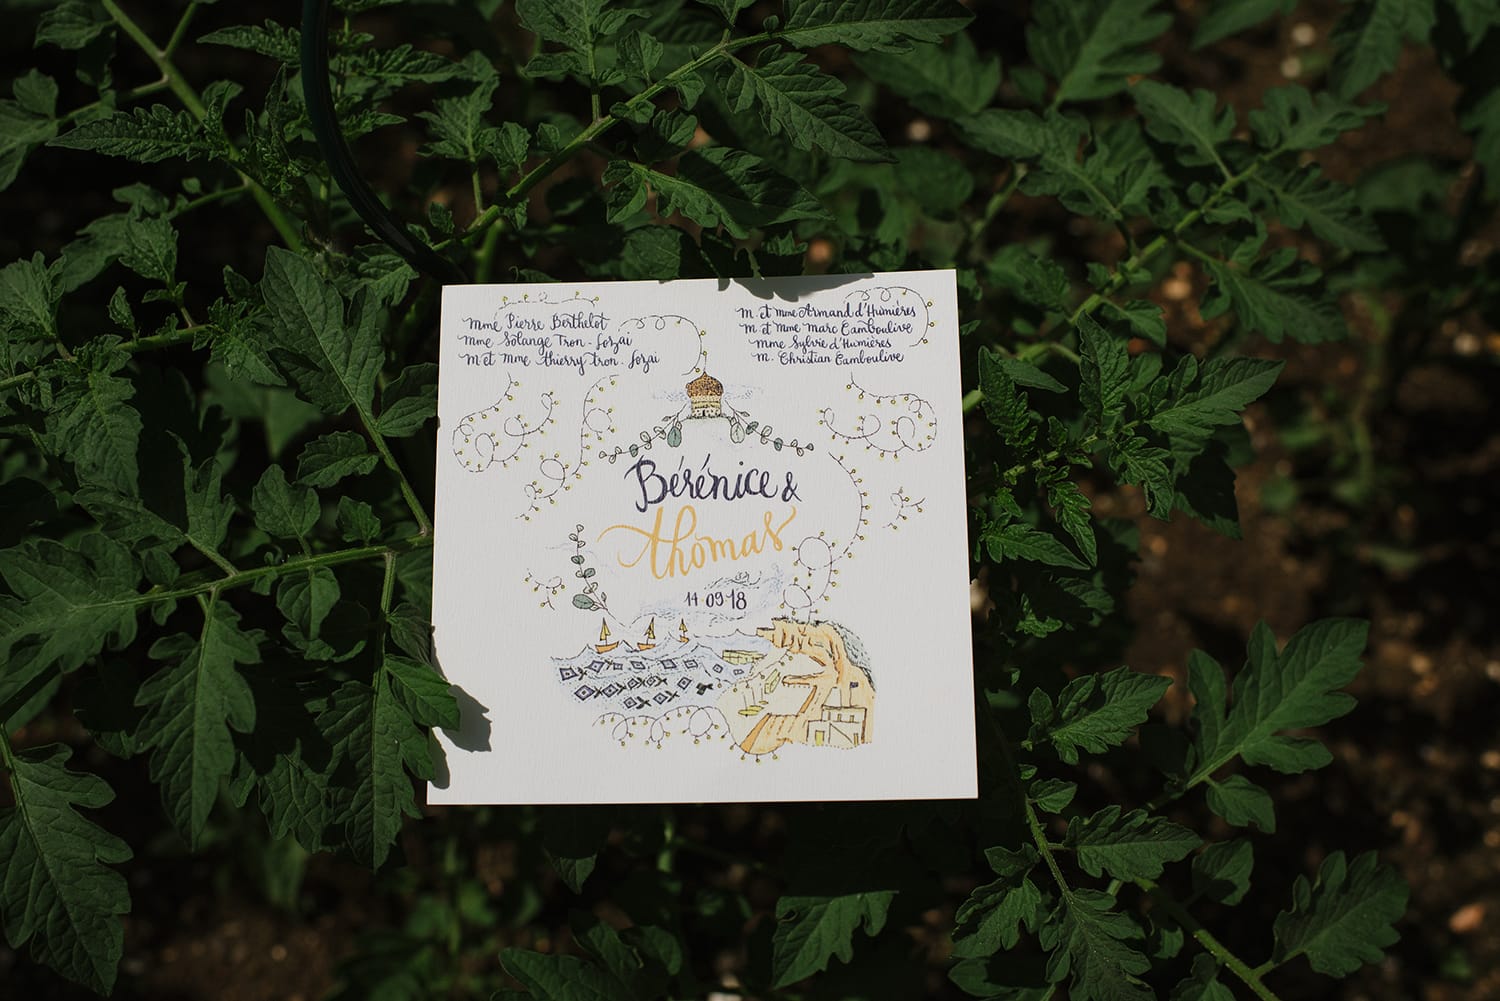 Mme Pierre Berthelot
Mme Solange Tron - Lozai
M et Mme Thierry Tron - Lozai
M. et Mme Armand d'Humières
M. et Mme Marc Camboulive
Mme Sylvie d'Humières
M. Christian Camboulive
Bérénice &
Thomas
14·09·18